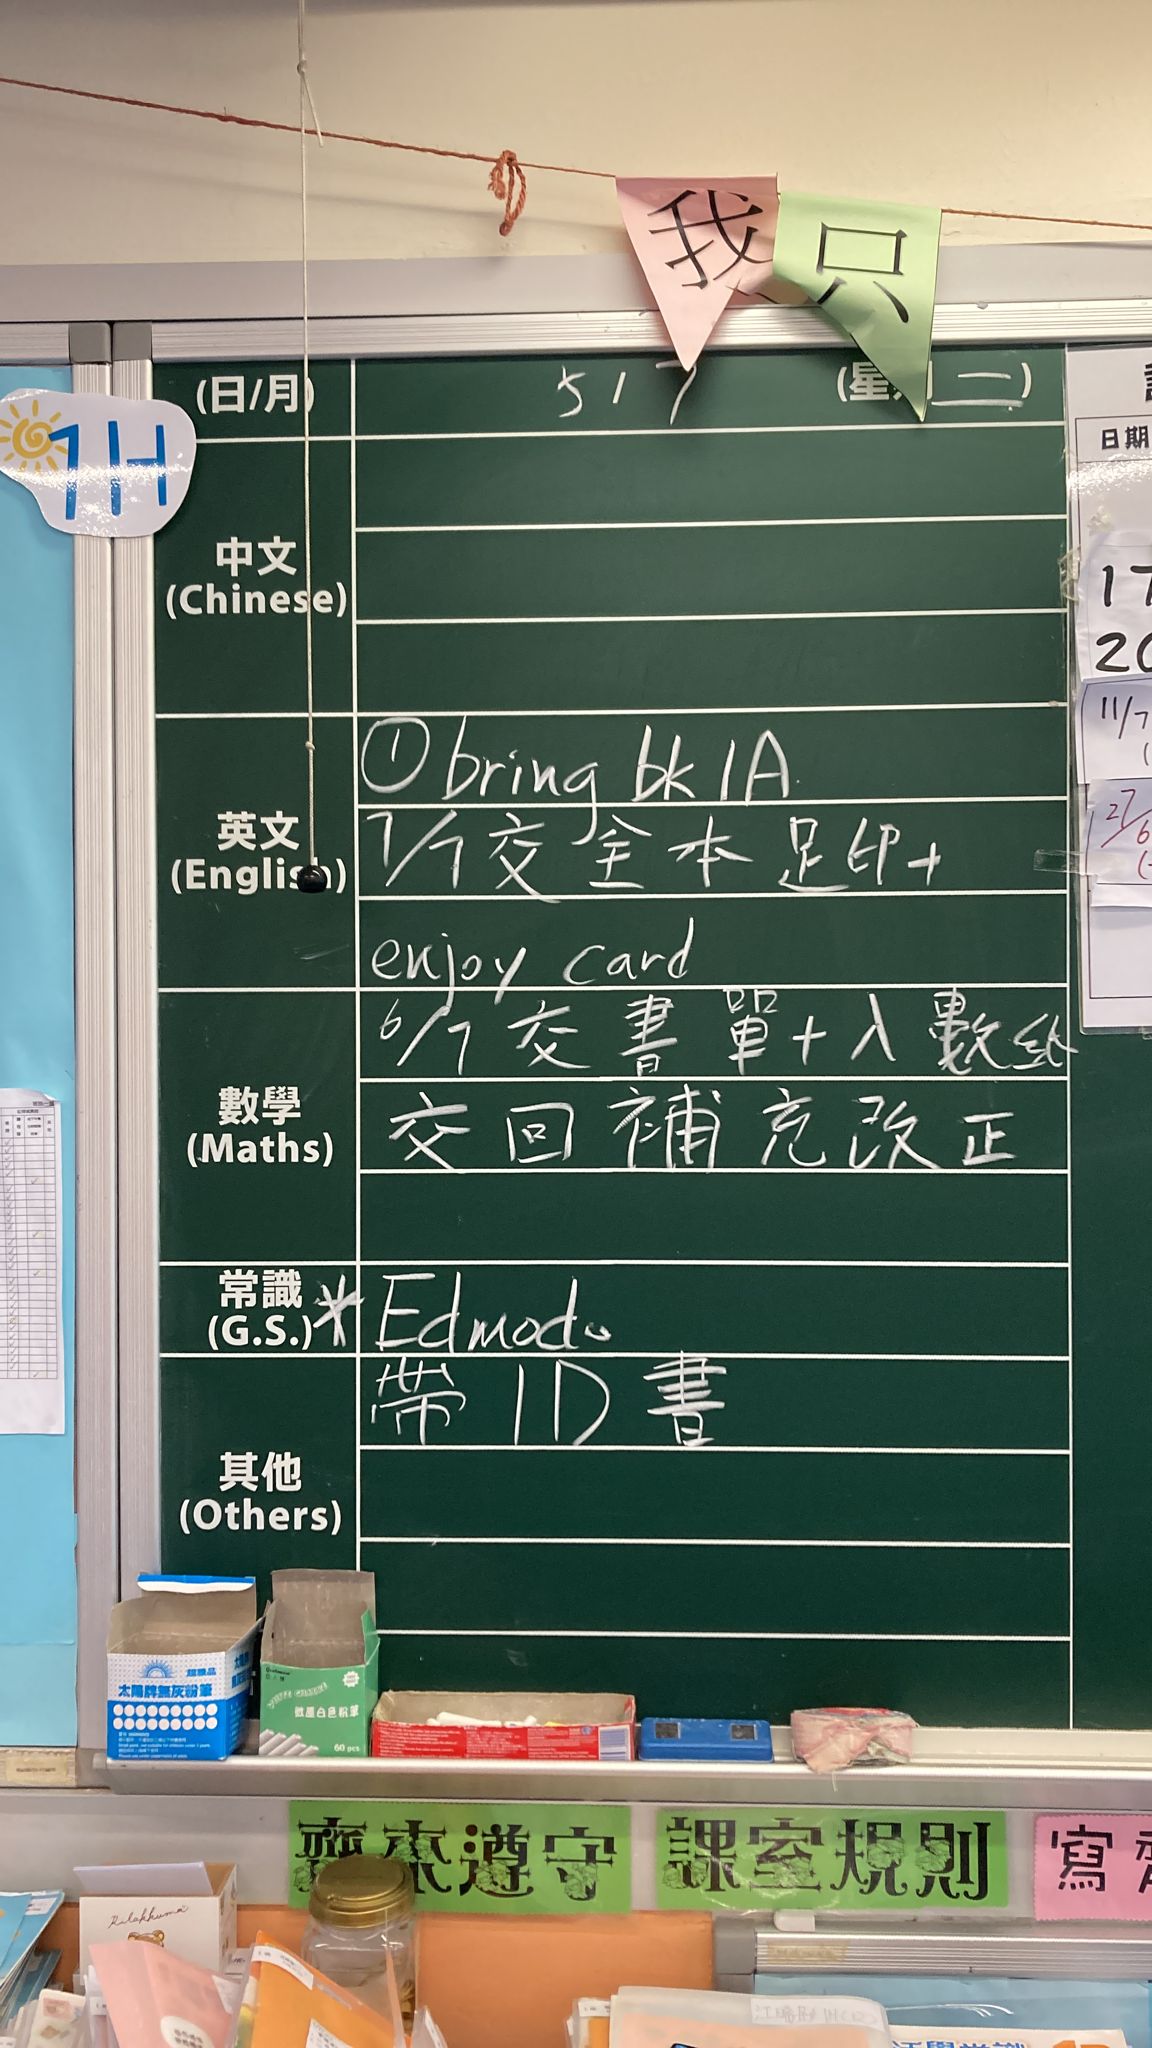 我只
(日/月)
5/7
(星期二)
1H
日期
中文
(Chinese)
17
20
11/7
英文
(English)
①bring bk 1A
7/7交全本足印+
enjoy card
27/6
數學
(Maths)
6/7交書單+入數紙
交回補充改正
常識
(G.S.)
*Edmodo
其他
(Others)
帶1D書
超級品
太陽牌無灰粉筆
微塵白色粉筆
60 pcs
齊來遵守
課室規則
寫
Rilakkuma